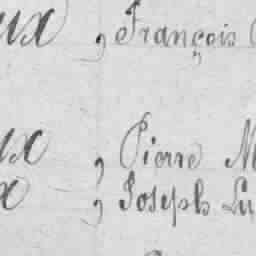 ux , François
ux , Pierre M
x , Joseph Lu